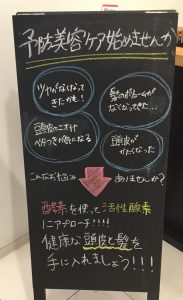 予防美容ケア始めませんか
ツヤがなくなって
きたかも!
髪のボリュームが
なくなってきた…
頭皮のニオイ
ベタつきが気になる
頭皮が
かたくなった
こんなお悩み ありませんか?
酵素を使って活性酸素
にアプローチ!!!!
健康な頭皮と髪を
手に入れましょう!!!